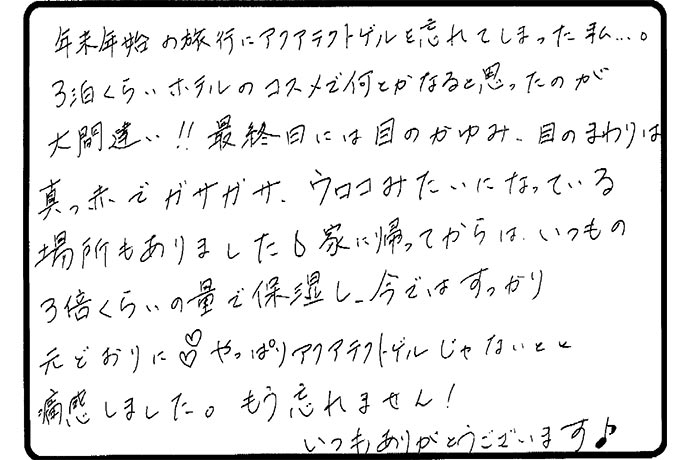 年末年始の旅行にアクアテクトゲルを忘れてしまった私…。
3泊くらいホテルのコスメで何とかなると思ったのが
大間違い!!最終日には目のかゆみ、目のまわりは
真っ赤でガサガサ、ウロコみたいになっている
場所もありました。家に帰ってからは、いつもの
3倍くらいの量で保湿し、今ではすっかり
元どおりに♡♡やっぱりアクアテクトゲルじゃないとと
痛感しました。もう忘れません!
いつもありがとうございます♪